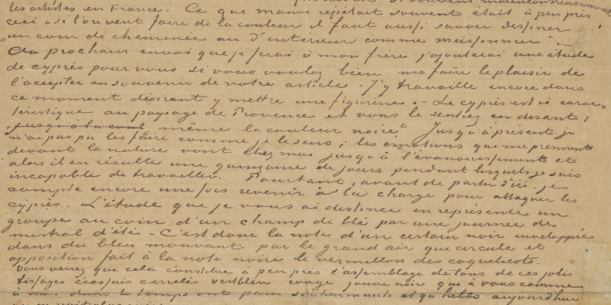 les artistes en France. Ce que mauve répétait souvent était à peu près
ceci "si l'on veut faire de la couleur il faut aussi savoir dessiner
un coin de cheminée ou d'intérieur comme meissonnier".
Au prochain envoi que je ferai à mon frère j'ajouterai une étude
de cyprès pour vous si vous voulez bien me faire le plaisir de
l'accepter en souvenir de votre article. J'y travaille encore dans
ce moment désirant y mettre une figurine. - Le cyprès est si carac-
téristique au paysage de Provence et vous le sentiez en disant:
même la couleur noire". Jusqu'à présent je
n'ai pas pu les faire comme je le sens; les émotions qui me prennent
devant la nature vont chez moi jusqu'à l'évanouissement et
alors il en résulte une quinzaine de jours pendant lesquels je suis
incapable de travailler. Pourtant, avant de partir d'ici je
compte encore une fois revenir à la charge pour attaquer les
cyprès. L'étude que je vous ai destinée en représente un
groupe au coin d'un champ de blé par une journée de
mistral d'été. - C'est donc la note d'un certain noir enveloppée
dans du bleu mouvant par le grand air qui circule et
opposition fait à la note noire le vermillon des coquelicots.
Vous verrez que cela constitue à peu près l'assemblage de tons de ces jolis
tissages écossais carrelés vert bleu rouge jaune noir qui à vous comme
à moi dans le temps ont paru si charmants et qu'hélas aujourdhui